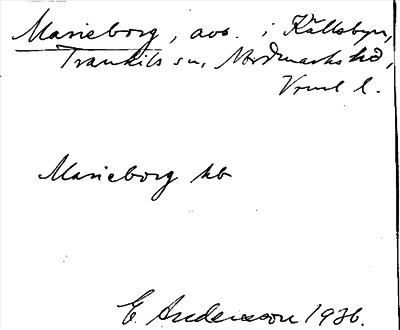 Marieborg, avs. i Källsbyn,
Trankils sn, Nordmarks hd,
Vrml l.
Marieborg hb
E. Andersson 1936.